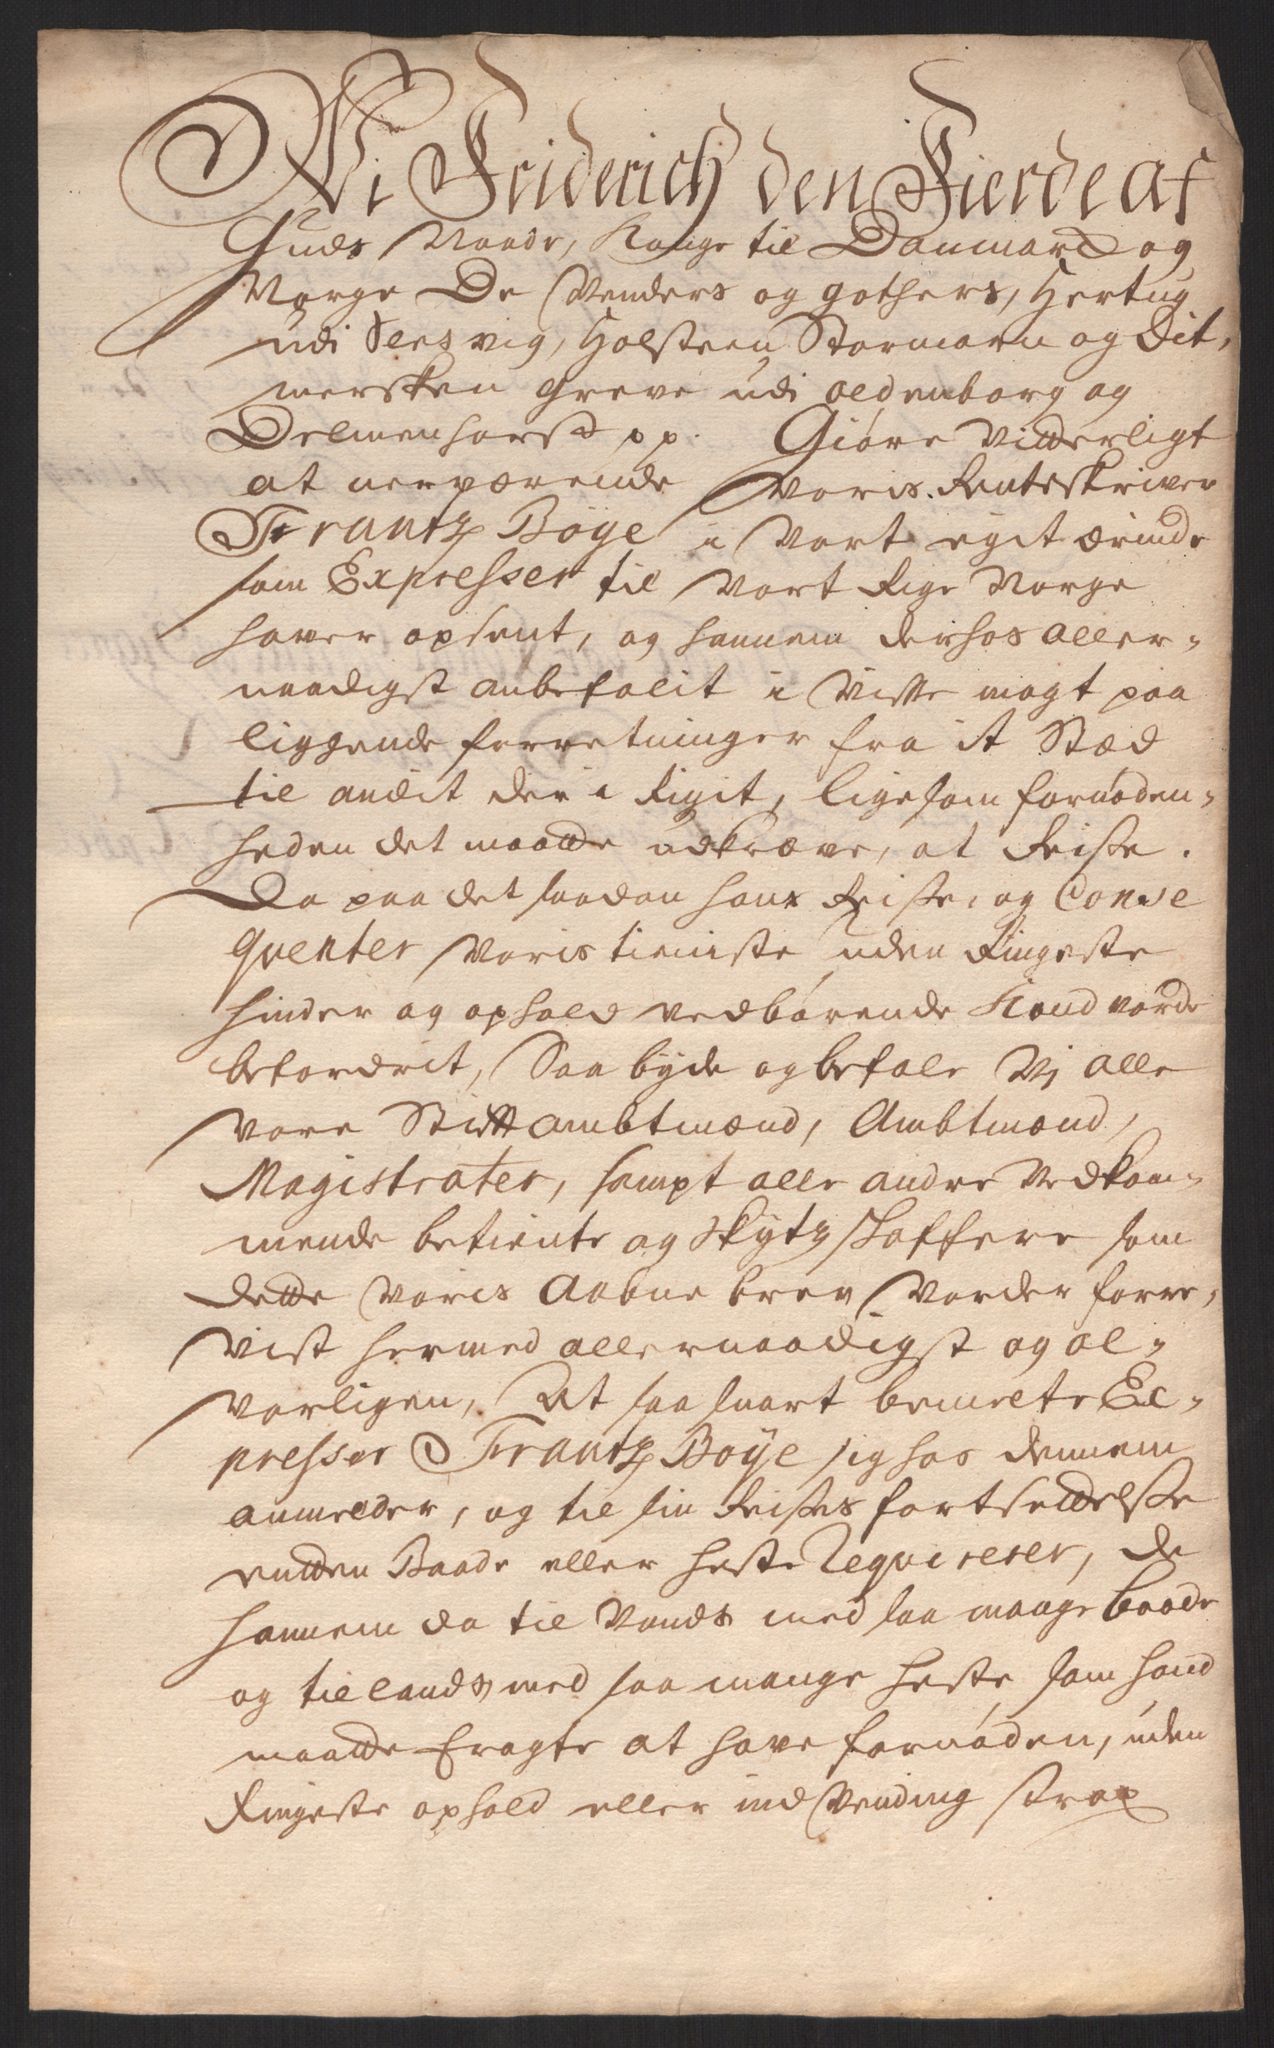 Wi Friderich den Fierde af
Guds Naade, Konge til Danmark og
Norge De Wenders og gothers, Hertug
udi Slesvig, Holsteen Stormarn og Dit,
mersken Greve udi Oldenborg og
Delmenhorst pp. Giøre Vitterligt
at nerværende Voris Renteskriver
Frantz Böye i Vort egit ærinde
som Expresser til Vort Rige Norge
haver opsent, og hannem derhos aller-
naadigst anbefalit i Visse magt paa
liggende forretninger fra it Stæd
til andit der i Rigit, ligesom fornøden-
heden det maatte udkræve, at Reise.
Da paa det saadan hans Reise, og Conse
qventer Voris tieniste uden Ringeste
hinder og ophold vedbørende Kand vorde
befordret, Saa byde og befale Vj alle
Vore Stiftambtmænd, Ambtmænd,
Magistrater, sampt alle andre Vedkom-
mende betiente og Skytz skaffere som
dette Voris Aabne brev Vorder forre,
vist hermed allernaadigst og al-
varligen, At saa snart bemelte Ex-
presser Frantz Boÿe sig hos dennem
anmelder, og til sin Reises fortsettelse
entten Baade eller heste Reqvirerer, de
hannem da til Vands med saa mange baade
og til lands med saa mange heste som hand
maatte Eragte at have fornøden, uden
Ringeste ophold eller indvending strax